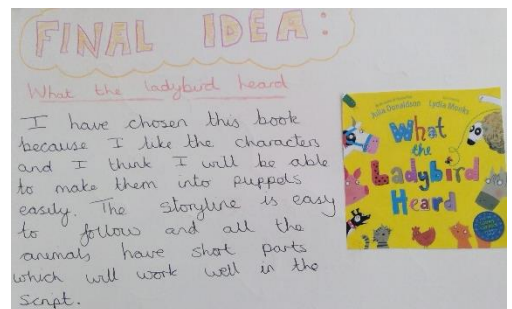 FINAL IDEA:
What the ladybird heard
I have chosen this book
because I like the characters
and I think I will be able
to make them into puppets
easily. The storyline is easy
to follow and all the
animals have short parts
which will work well in the
script.
Julia Donaldson
Lydia Monks
What
the
Ladybird
Heard